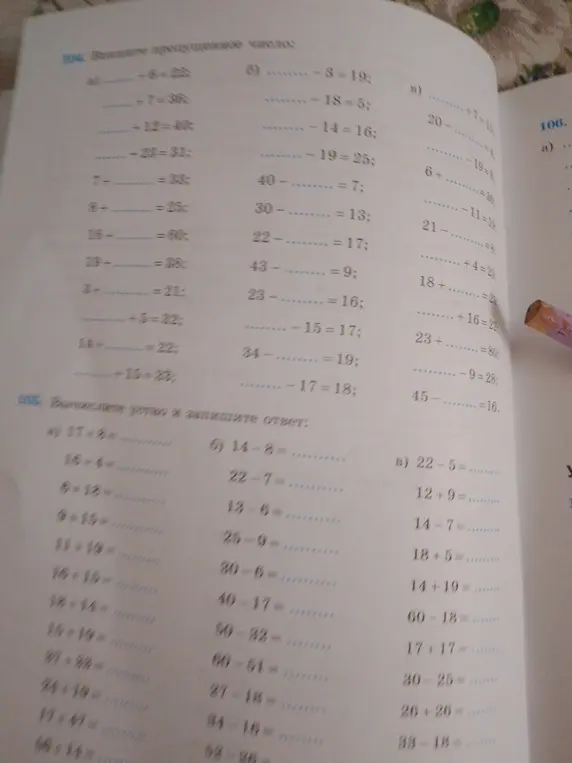 104. Впишите пропущенное число:
а) ...... + 6 = 22;
...... + 7 = 36;
...... + 12 = 40;
...... + 23 = 31;
7 + ...... = 33;
8 + ...... = 25;
16 + ...... = 60;
19 + ...... = 38;
3 + ...... = 21;
...... + 5 = 32;
14 + ...... = 22;
...... + 15 = 33;
б) ...... − 3 = 19;
...... − 18 = 5;
...... − 14 = 16;
...... − 19 = 25;
40 − ...... = 7;
30 − ...... = 13;
22 − ...... = 17;
43 − ...... = 9;
23 − ...... = 16;
...... − 15 = 17;
34 − ...... = 19;
...... − 17 = 18;
в) ...... + 7 =
20 − ...... =
...... − 19 =
6 + ...... =
...... − 11 =
21 − ...... =
...... + 4 =
18 + ...... =
...... + 16 =
23 + ...... =
...... − 9 = 28;
45 − ...... = 16.
105. Вычислите устно и запишите ответ:
а) 17 + 8 = ......
16 + 4 = ......
6 + 18 = ......
9 + 15 = ......
11 + 19 = ......
16 + 15 = ......
18 + 14 = ......
15 + 19 = ......
24 + 19 = ......
17 + 47 = ......
б) 14 − 8 = ......
22 − 7 = ......
13 − 6 = ......
25 − 9 = ......
30 − 6 = ......
40 − 17 = ......
50 − 32 = ......
60 − 51 = ......
27 − 18 = ......
34 − 16 = ......
52 − 26 = ......
в) 22 − 5 = ......
12 + 9 = ......
14 − 7 = ......
18 + 5 = ......
14 + 19 = ......
60 − 18 = ......
17 + 17 = ......
30 − 25 = ......
26 + 26 = ......
33 − 18 = ......
106.
а)